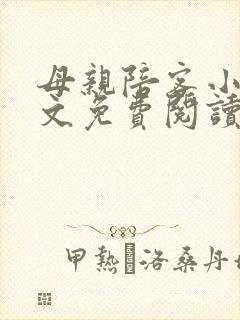 母親陪客小
文免費閱讀
甲熱洛桑丹